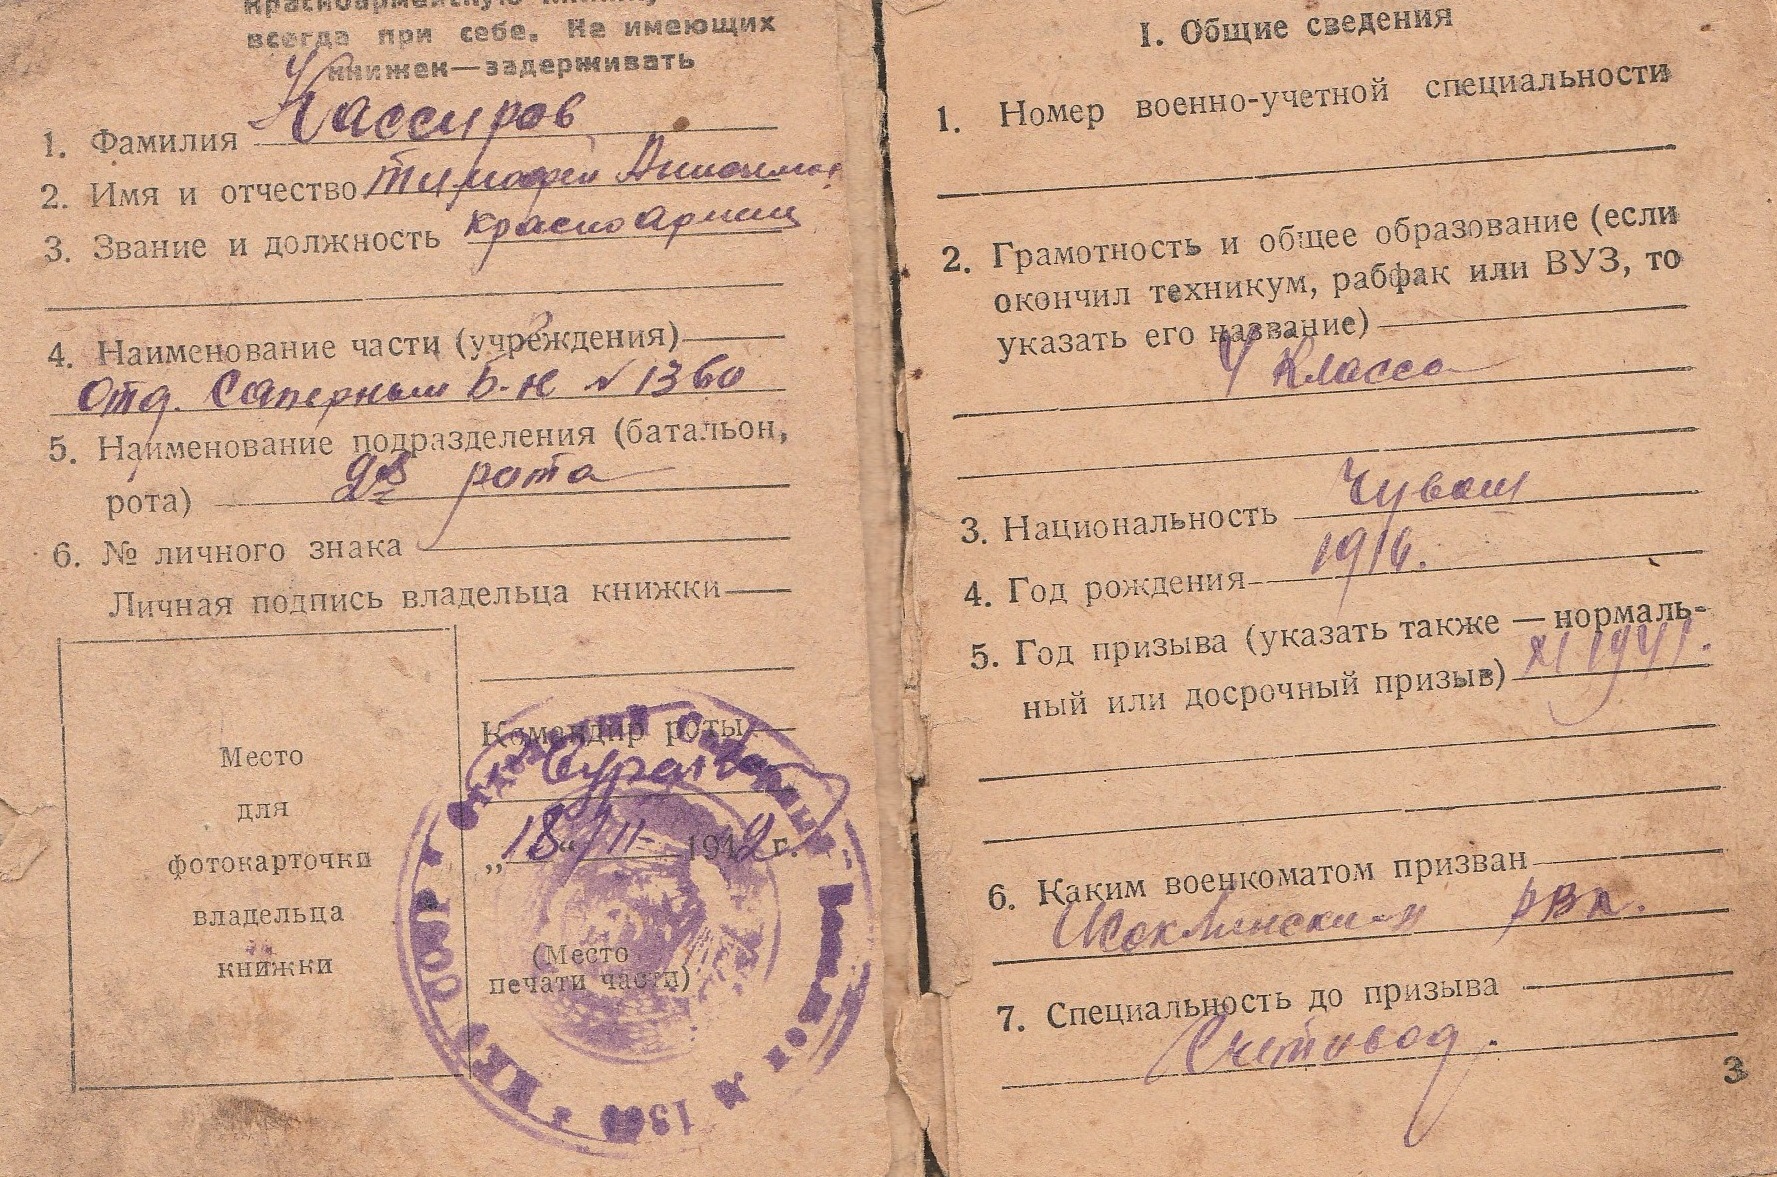 Красноармейскую книжку
всегда при себе. Не имеющих
книжек—задерживать
1. Фамилия Кассиров
2. Имя и отчество Тимофей
3. Звание и должность красноармеец
4. Наименование части (учреждения)
Отд. Саперным б-н № 1360
5. Наименование подразделения (батальон,
рота) рота
6. № личного знака
Личная подпись владельца книжки
Место
для
фотокарточки
владельца
книжки
Командир роты
„18“ 11 1942 г.
(Место
печати части)
НКО СССР * Отдельный Саперный № 1360 *
I. Общие сведения
1. Номер военно-учетной специальности
2. Грамотность и общее образование (если
окончил техникум, рабфак или ВУЗ, то
указать его название)
4 класса
3. Национальность Чуваш
4. Год рождения 1916.
5. Год призыва (указать также — нормаль-
ный или досрочный призыв) XI 1941.
6. Каким военкоматом призван
РВК.
7. Специальность до призыва
Счетовод.
3